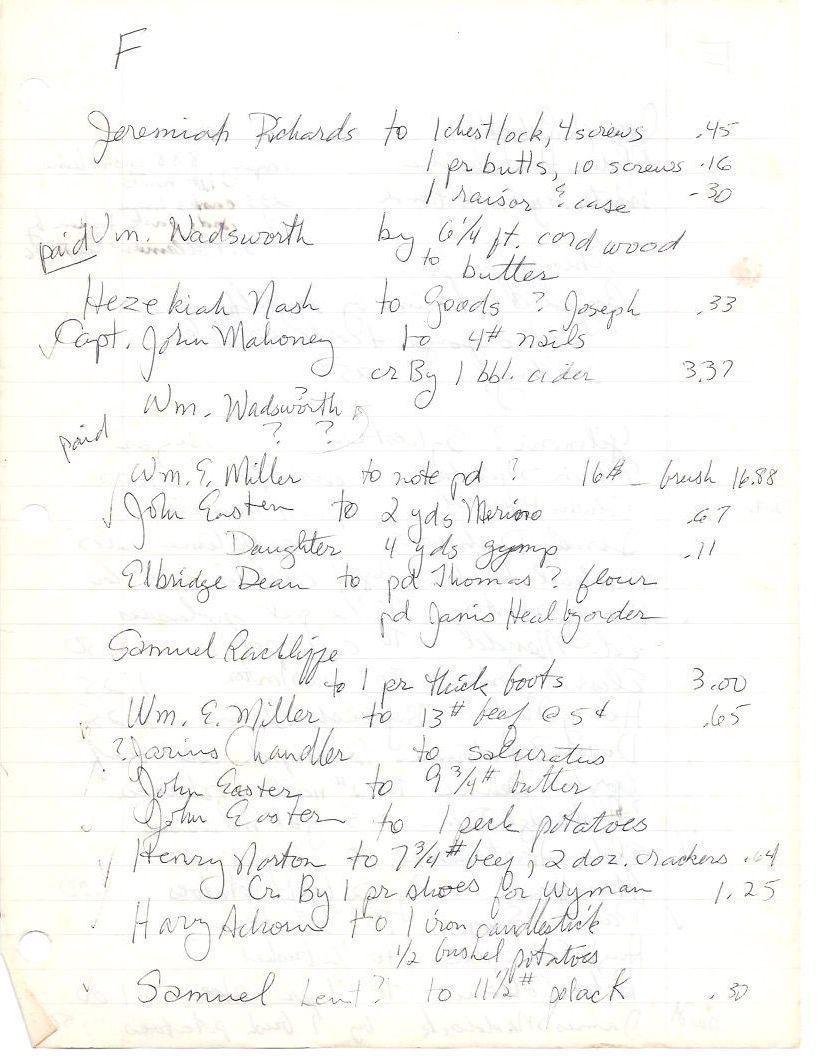 F
Jeremiah Richards to 1 chest lock, 4 screws .45
1 pr butts, 10 screws .16
1 raisor & case .30
paid Wm. Wadsworth by 6 1/4 ft. cord wood
to butter
Hezekiah Nash to Goods ? Joseph .33
✓ Capt. John Mahoney to 4# nails
cr By 1 bbl. cider 3.37
Wm. Wadsworth ?
paid ? ?
Wm. E. Miller to note pd ? 16# - brush 16.88
✓ John Easten to 2 yds Merino .67
Daughter 4 yds gymp .11
Elbridge Dean to pd Thomas ? flour
pd Janis Heal by order
Samuel Rackliffe
to 1 pr thick boots 3.00
Wm. E. Miller to 13# beef @ 5¢ .65
? Jarius Chandler to saluratus
John Easter to 9 3/4# butter
John Easter to 1 peck potatoes
Henry Norton to 7 3/4# beef, 2 doz. crackers .64
Cr. By 1 pr shoes for Wyman 1.25
to 1 iron candlestick
1/2 bushel potatoes
Samuel Lent? to 11 1/2# polack .30